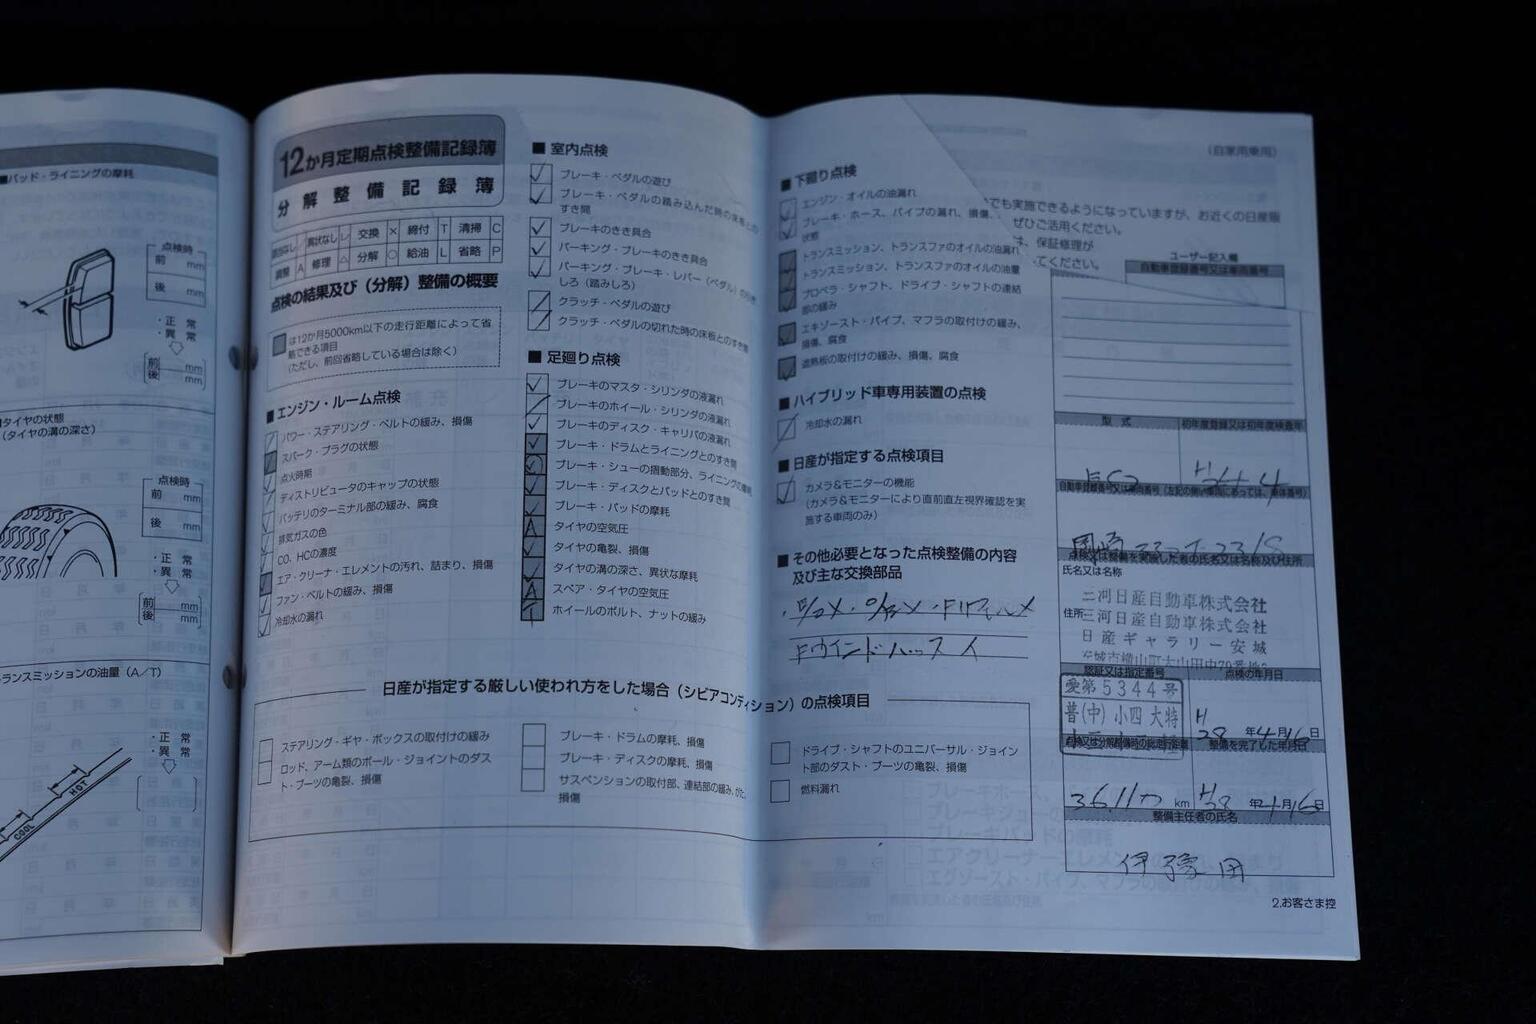 ■パッド・ライニングの摩耗
点検時
前 mm
後 mm
・正 常
・異 常
前 mm
後 mm
タイヤの状態
(タイヤの溝の深さ)
点検時
前 mm
後 mm
・正 常
・異 常
前 mm
後 mm
ランスミッションの油量(A/T)
・正 常
・異 常
HOT
COOL
12か月定期点検整備記録簿
分解整備記録簿
異状なし レ 交換 × 締付 T 清掃 C
調整 A 修理 △ 分解 ○ 給油 L 省略 P
点検の結果及び(分解)整備の概要
は12か月5000km以下の走行距離によって省
略できる項目
(ただし、前回省略している場合は除く)
■エンジン・ルーム点検
パワー・ステアリング・ベルトの緩み、損傷
スパーク・プラグの状態
点火時期
ディストリビュータのキャップの状態
バッテリのターミナル部の緩み、腐食
排気ガスの色
CO、HCの濃度
エア・クリーナ・エレメントの汚れ、詰まり、損傷
ファン・ベルトの緩み、損傷
冷却水の漏れ
■室内点検
ブレーキ・ペダルの遊び
ブレーキ・ペダルの踏み込んだ時の床板との
すき間
ブレーキのきき具合
パーキング・ブレーキのきき具合
パーキング・ブレーキ・レバー(ペダル)の引き
しろ(踏みしろ)
クラッチ・ペダルの遊び
クラッチ・ペダルの切れた時の床板とのすき間
■足廻り点検
ブレーキのマスタ・シリンダの液漏れ
ブレーキのホイール・シリンダの液漏れ
ブレーキのディスク・キャリパの液漏れ
ブレーキ・ドラムとライニングとのすき間
ブレーキ・シューの摺動部分、ライニングの摩耗
ブレーキ・ディスクとパッドとのすき間
ブレーキ・パッドの摩耗
タイヤの空気圧
タイヤの亀裂、損傷
タイヤの溝の深さ、異状な摩耗
スペア・タイヤの空気圧
ホイールのボルト、ナットの緩み
日産が指定する厳しい使われ方をした場合(シビアコンディション)の点検項目
ステアリング・ギヤ・ボックスの取付けの緩み
ロッド、アーム類のボール・ジョイントのダス
ト・ブーツの亀裂、損傷
ブレーキ・ドラムの摩耗、損傷
ブレーキ・ディスクの摩耗、損傷
サスペンションの取付部、連結部の緩み、がた、
損傷
ドライブ・シャフトのユニバーサル・ジョイン
ト部のダスト・ブーツの亀裂、損傷
燃料漏れ
■下廻り点検
エンジン・オイルの油漏れ
ブレーキ・ホース、パイプの漏れ、損傷、
状態
トランスミッション、トランスファのオイルの油漏れ
トランスミッション、トランスファのオイルの油量
プロペラ・シャフト、ドライブ・シャフトの連結
部の緩み
エキゾースト・パイプ、マフラの取付けの緩み、
損傷、腐食
遮熱板の取付けの緩み、損傷、腐食
■ハイブリッド車専用装置の点検
冷却水の漏れ
■日産が指定する点検項目
カメラ&モニターの機能
(カメラ&モニターにより直前直左視界確認を実
施する車両のみ)
■その他必要となった点検整備の内容
及び主な交換部品
Fウインドハッスイ
(自家用乗用)
でも実施できるようになっていますが、お近くの日産販
ぜひご活用ください。
は、保証修理が
てください。
ユーザー記入欄
自動車登録番号又は車両番号
型 式
初年度登録又は初年度検査年
H24-4
点検又は整備を実施した者の氏名又は名称及び住所
氏名又は名称
三河日産自動車株式会社
住所 三河日産自動車株式会社
日産ギャラリー安城
安城市横山町大山田中79番地
認証又は指定番号
点検の年月日
愛第5344号
普(中)小四大特
H28年4月16日
整備を完了した年月日
km
H28年4月16日
整備主任者の氏名
2.お客さま控